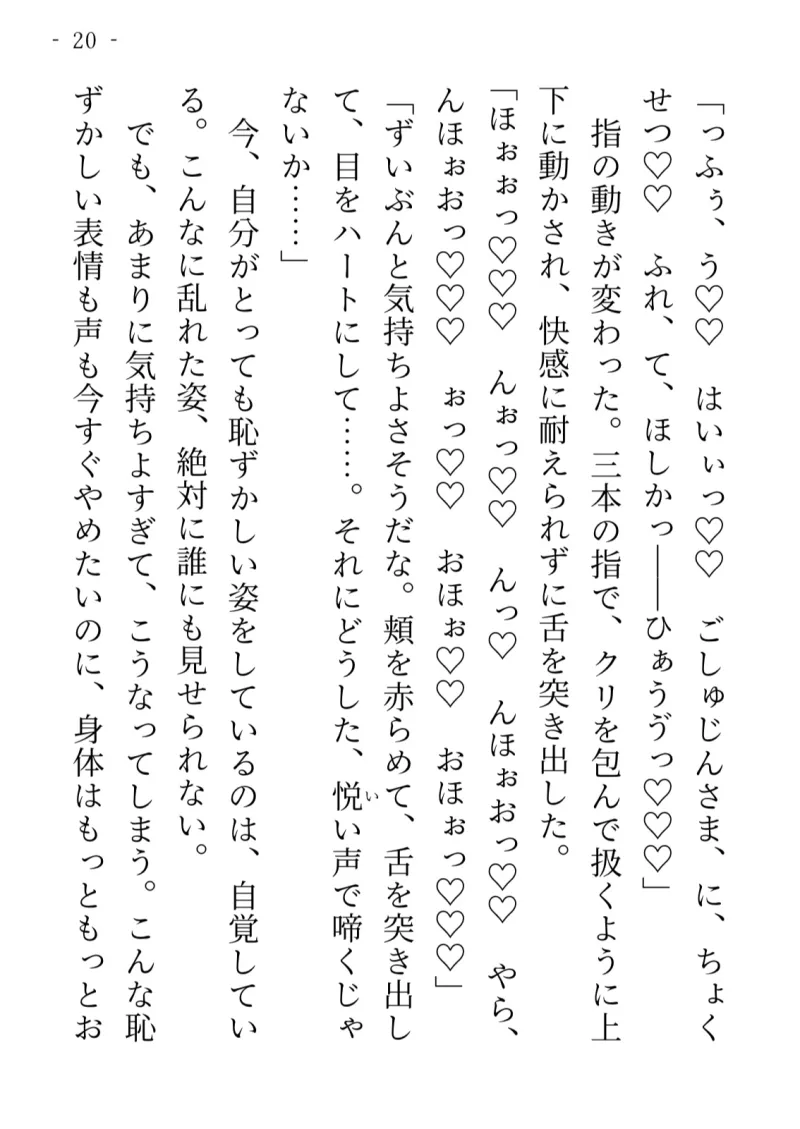 - 20 -
「っふぅ、う♡♡　はいぃっ♡♡　ごしゅじんさま、に、ちょく
せつ♡♡　ふれ、て、ほしかっ――ひぁうゔっ♡♡♡」
　指の動きが変わった。三本の指で、クリを包んで扱くように上
下に動かされ、快感に耐えられずに舌を突き出した。
「ほぉぉっ♡♡♡　んぉっ♡♡　んっ♡　んほぉおっ♡♡　やら、
んほぉおっ♡♡♡　ぉっ♡♡　おほぉ♡♡　おほぉっ♡♡♡」
「ずいぶんと気持ちよさそうだな。頬を赤らめて、舌を突き出し
て、目をハートにして……。それにどうした、悦い声で啼くじゃ
ないか……」
　今、自分がとっても恥ずかしい姿をしているのは、自覚してい
る。こんなに乱れた姿、絶対に誰にも見せられない。
　でも、あまりに気持ちよすぎて、こうなってしまう。こんな恥
ずかしい表情も声も今すぐやめたいのに、身体はもっともっとお